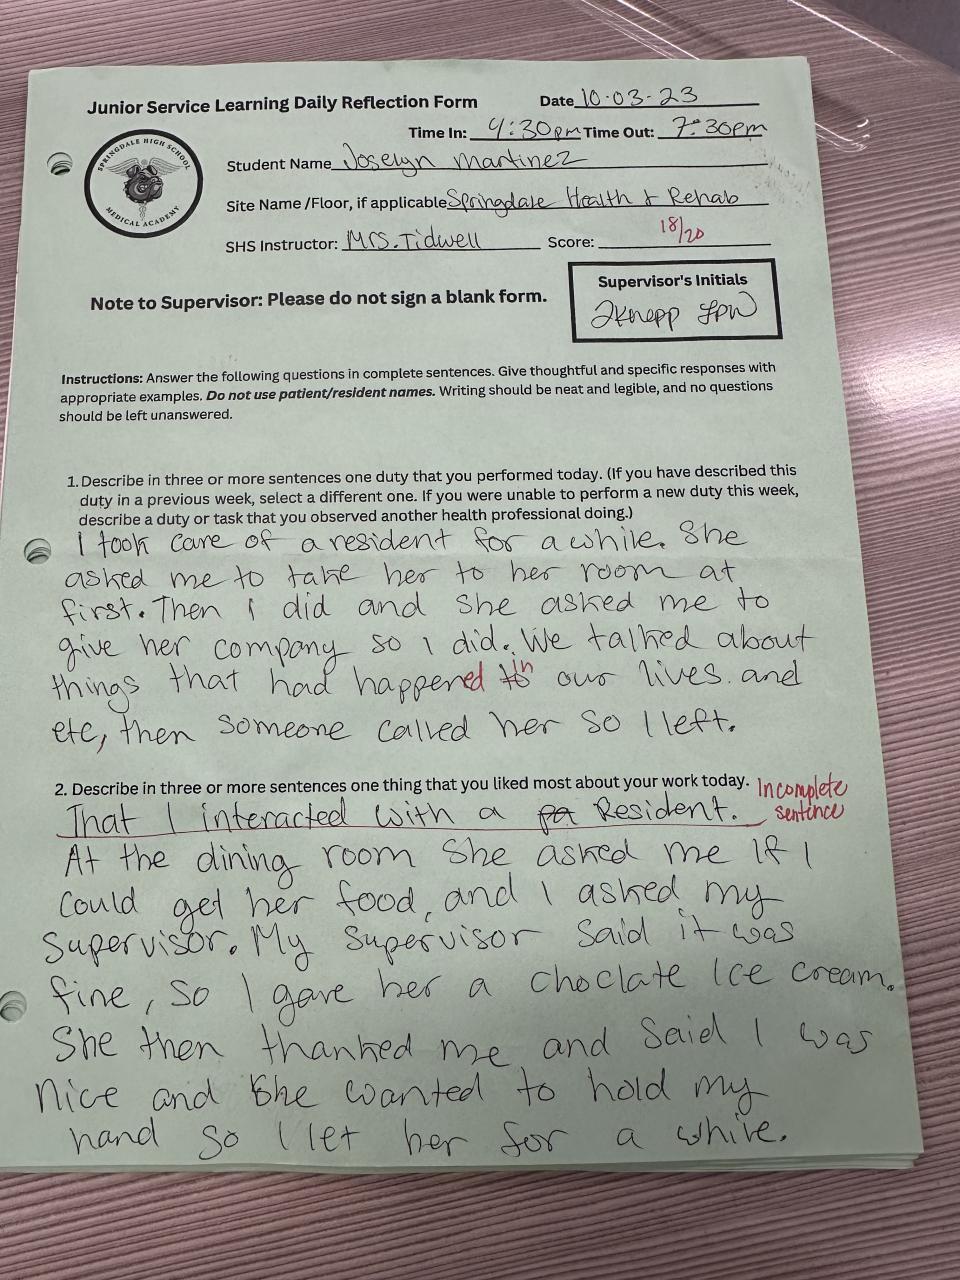 Junior Service Learning Daily Reflection Form
Date 10-03-23
Time In: 4:30pm Time Out: 7:30pm
SPRINGDALE HIGH SCHOOL
MEDICAL ACADEMY
Student Name Joselyn martinez
Site Name /Floor, if applicable Springdale Health & Rehab
SHS Instructor: Mrs. Tidwell Score: 18/20
Note to Supervisor: Please do not sign a blank form.
Supervisor's Initials
JKnepp LPN
Instructions: Answer the following questions in complete sentences. Give thoughtful and specific responses with
appropriate examples. Do not use patient/resident names. Writing should be neat and legible, and no questions
should be left unanswered.
1. Describe in three or more sentences one duty that you performed today. (If you have described this
duty in a previous week, select a different one. If you were unable to perform a new duty this week,
describe a duty or task that you observed another health professional doing.)
I took care of a resident for a while. She
asked me to take her to her room at
first. Then I did and she asked me to
give her company so I did. We talked about
things that had happened in our lives and
etc, then someone called her so I left.
2. Describe in three or more sentences one thing that you liked most about your work today. Incomplete
sentence
That I interacted with a Resident.
At the dining room She asked me If I
could get her food, and I asked my
Supervisor. My Supervisor Said it was
fine, so I gave her a choclate Ice cream.
She then thanked me and Said I was
Nice and She wanted to hold my
hand so I let her for a while.